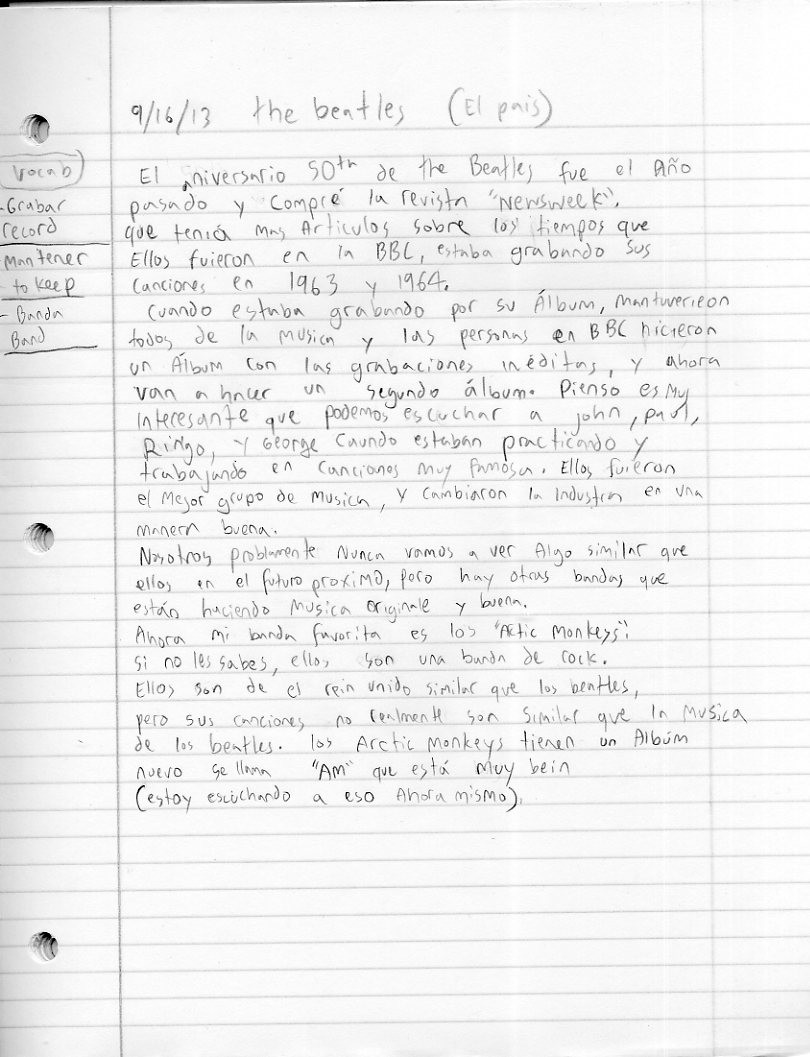 9/16/13 the beatles (El pais)
vocab
- Grabar
record
Mantener
- to keep
- Banda
Band
El aniversario 50th de the Beatles fue el Año
pasado y compré la revista "Newsweek",
que teniá mas Articulos sobre los tiempos que
Ellos fuieron en la BBC, estaba grabando sus
Canciones en 1963 y 1964.
Cuando estaba grabando por su Álbum, mantuverieon
todos de la Musica y las personas en BBC hicieron
un Álbum con las grabaciones inéditas, y ahora
van a hacer un segundo álbum. Pienso es My
interesante que podemos escuchar a john, paul,
Ringo, y George Caundo estaban practicando y
trabajando en canciones muy famosa. Ellos fuieron
el Mejor grupo de Musica, y cambiaron la industria en una
manera buena.
Nosotros problamente Nunca vamos a ver Algo similar que
ellos en el futuro proximo, pero hay otras bandas que
están haciendo Musica Originale y buena.
Ahora mi banda favorita es los "Actic Monkeys".
si no les sabes, ellos son una banda de rock.
Ellos son de el rein unido similar que los beatles,
pero sus canciones no realmente son similar que la Musica
de los beatles. los Arctic Monkeys tienen un Albúm
nuevo se llama "AM" que está Muy bein
(estoy escuchando a eso Ahora mismo).